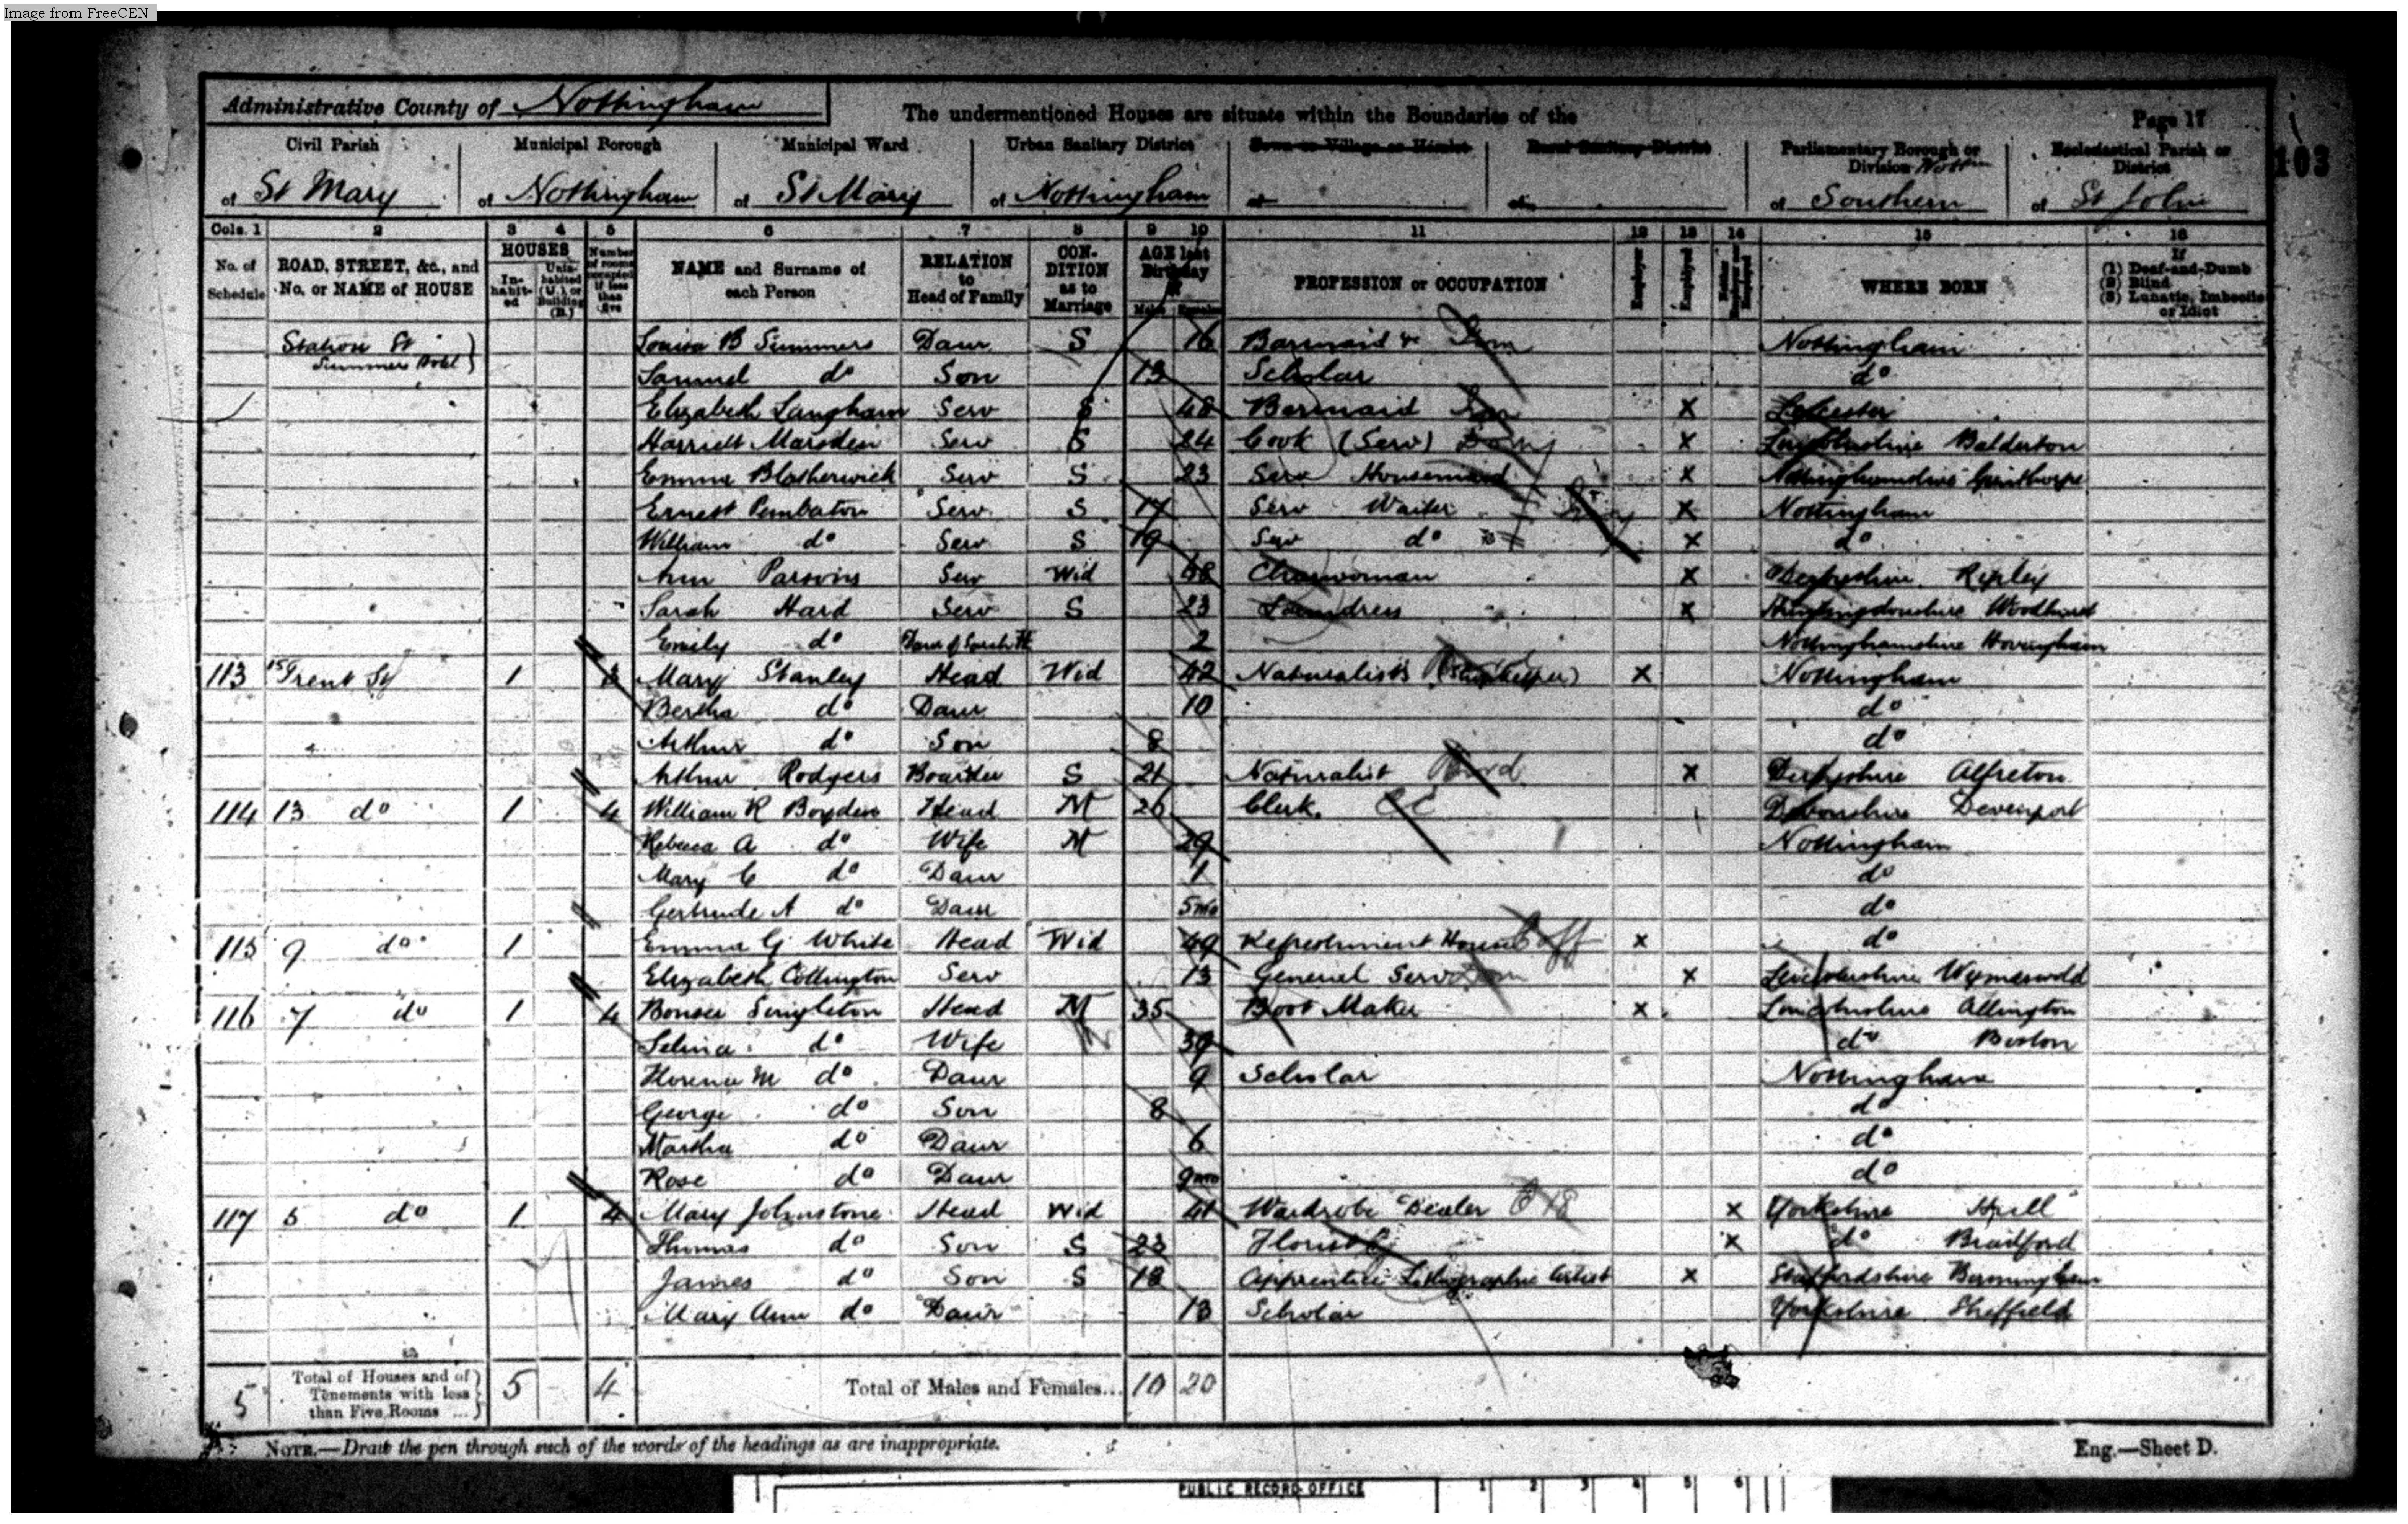 Image from FreeCEN
Administrative County of Nottingham
The undermentioned Houses are situate within the Boundaries of the
Page 17
103
Civil Parish Municipal Borough Municipal Ward Urban Sanitary District Town or Village or Hamlet Rural Sanitary District Parliamentary Borough or Division Ecclesiastical Parish or District
of St Mary of Nottingham of St Mary of Nottingham of of of Southern of St John
Cols. 1 2 3 4 5 6 7 8 9 10 11 12 13 14 15 16
No. of Schedule ROAD, STREET, &c., and No. or NAME of HOUSE HOUSES In-habit-ed Unin-habited (U.) or Building (B.) Number of rooms occupied if less than five NAME and Surname of each Person RELATION to Head of Family CON-DITION as to Marriage AGE last Birthday of Males Females PROFESSION or OCCUPATION Employer Employed Neither Employer nor Employed WHERE BORN If (1) Deaf-and-Dumb (2) Blind (3) Lunatic, Imbecile or Idiot
Station St Louisa B Summers Daur S 16 Barmaid Dom Nottingham
Summers Hotel Samuel do Son 13 Scholar do
Elizabeth Langham Serv S 48 Barmaid X Leicester
Harriett Marsden Serv S 24 Cook (Serv) X Lincolnshire Balderton
Emma Blatherwick Serv S 23 Serv Housemaid X Nottinghamshire
Ernest Pembaton Serv S 17 Serv Waiter X Nottingham
William do Serv S 19 Serv do X do
Ann Parsons Serv Wid 48 Charwoman X Derbyshire Ripley
Sarah Hard Serv S 23 Laundress X Huntingdonshire Woodhurst
Emily do Daur of Sarah H 2 Nottinghamshire Hoveringham
113 15 Trent St 1 3 Mary Stanley Head Wid 42 Naturalists (Shopkeeper) X Nottingham
Bertha do Daur 10 do
Arthur do Son 8 do
Arthur Rodgers Boarder S 21 Naturalist X Derbyshire Alfreton
114 13 do 1 4 William R Boyden Head M 26 Clerk CC Devonshire Devenport
Rebecca A do Wife M 29 Nottingham
Mary C do Daur 1 do
Gertrude A do Daur 5mo do
115 9 do 1 Emma G White Head Wid 49 Refreshment House Coff X do
Elizabeth Collington Serv 13 General Serv Dom X Leicestershire Wymeswold
116 7 do 1 4 Bonser Singleton Head M 35 Boot Maker X Lincolnshire Allington
Selina do Wife 39 do Boston
Florence M do Daur 9 Scholar Nottingham
George do Son 8 do
Martha do Daur 6 do
Rose do Daur 9mo do
117 5 do 1 4 Mary Johnstone Head Wid 41 Wardrobe Dealer X Yorkshire Hull
Thomas do Son S 23 Florist X do Bradford
James do Son S 18 Apprentice Lithographic Artist X Staffordshire Birmingham
Mary Ann do Daur 13 Scholar Yorkshire Sheffield
5 Total of Houses and of Tenements with less than Five Rooms ... 5 4 Total of Males and Females... 10 20
NOTE.—Draw the pen through such of the words of the headings as are inappropriate.
Eng.—Sheet D.
PUBLIC RECORD OFFICE 1 2 3 4 5 6